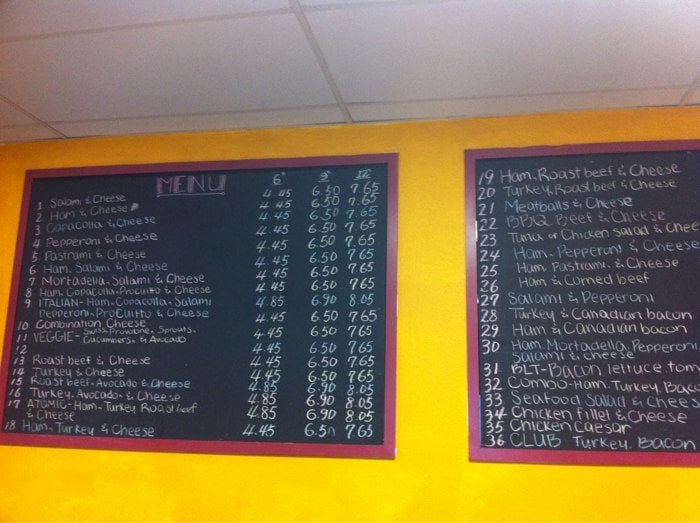 MENU 6" 9" 12"
1 Salami & Cheese 4.45 6.50 7.65
2 Ham & Cheese 4.45 6.50 7.65
3 Capacolla & Cheese 4.45 6.50 7.65
4 Pepperoni & Cheese 4.45 6.50 7.65
5 Pastrami & Cheese 4.45 6.50 7.65
6 Ham. Salami & Cheese 4.45 6.50 7.65
7 Mortadella. Salami & Cheese 4.45 6.50 7.65
8 Ham. Copacolla. Procuitto & Cheese 4.45 6.50 7.65
9 ITALIAN-Ham.Copacolla.Salami 4.85 6.90 8.05
Pepperoni.ProCuitto & Cheese
10 Combination Cheese 4.45 6.50 7.65
11 VEGGIE- Swiss, Provolone, Sprouts, 4.45 6.50 7.65
Cucumbers, & Avocado
12
13 Roast beef & Cheese 4.45 6.50 7.65
14 Turkey & Cheese 4.45 6.50 7.65
15 Roast beef-Avocado & Cheese 4.85 6.90 8.05
16 Turkey. Avocado- & Cheese 4.85 6.90 8.05
17 ATOMIC-Ham-Turkey Roast beef 4.85 6.90 8.05
& Cheese
18 Ham. Turkey & Cheese 4.45 6.50 7.65
19 Ham. Roast beef & Cheese
20 Turkey. Roast beef & Cheese
21 Meatballs & Cheese
22 BBQ Beef & Cheese
23 Tuna or Chicken Salad & Chee
24 Ham. Pepperoni & Cheese
25 Ham Pastrami. & Cheese
26 Ham & Corned beef
27 Salami & Pepperoni
28 Turkey & Canadian bacon
29 Ham & Canadian bacon
30 Ham. Mortadella. Pepperoni.
Salami & cheese
31 BLT-Bacon lettuce tom
32 Combo-Ham. Turkey. Bac
33 Seafood Salad & Chees
34 Chicken fillet & Cheese
35 Chicken Caesar
36 CLUB Turkey. Bacon